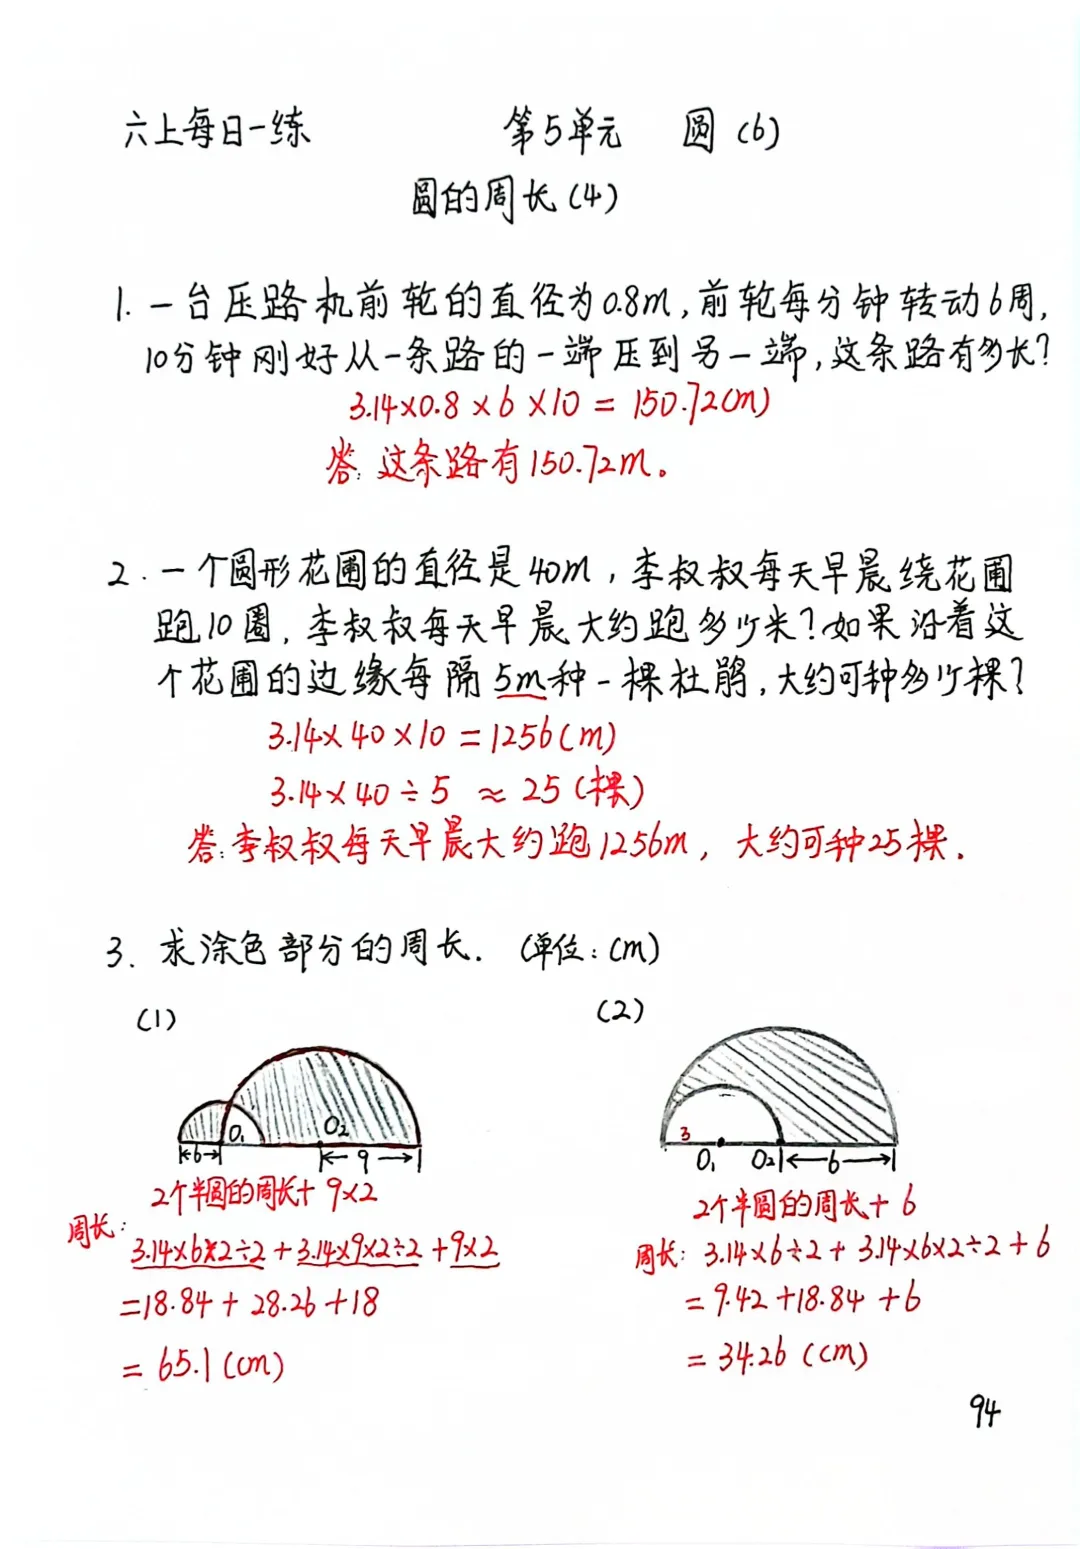 六上每日一练 第5单元 圆(6)
圆的周长(4)
1. 一台压路机前轮的直径为0.8m,前轮每分钟转动6周,
10分钟刚好从一条路的一端压到另一端,这条路有多长?
3.14×0.8×6×10=150.72(m)
答:这条路有150.72m。
2. 一个圆形花圃的直径是40m,李叔叔每天早晨绕花圃
跑10圈,李叔叔每天早晨大约跑多少米?如果沿着这
个花圃的边缘每隔5m种一棵杜鹃,大约可种多少棵?
3.14×40×10=1256(m)
3.14×40÷5≈25(棵)
答:李叔叔每天早晨大约跑1256m,大约可种25棵.
3. 求涂色部分的周长. (单位:cm)
(1)
O₁ O₂
6 9
2个半圆的周长+9×2
周长:
3.14×6×2÷2+3.14×9×2÷2+9×2
=18.84+28.26+18
=65.1(cm)
(2)
3
O₁ O₂ 6
2个半圆的周长+6
周长:3.14×6÷2+3.14×6×2÷2+6
=9.42+18.84+6
=34.26(cm)
94